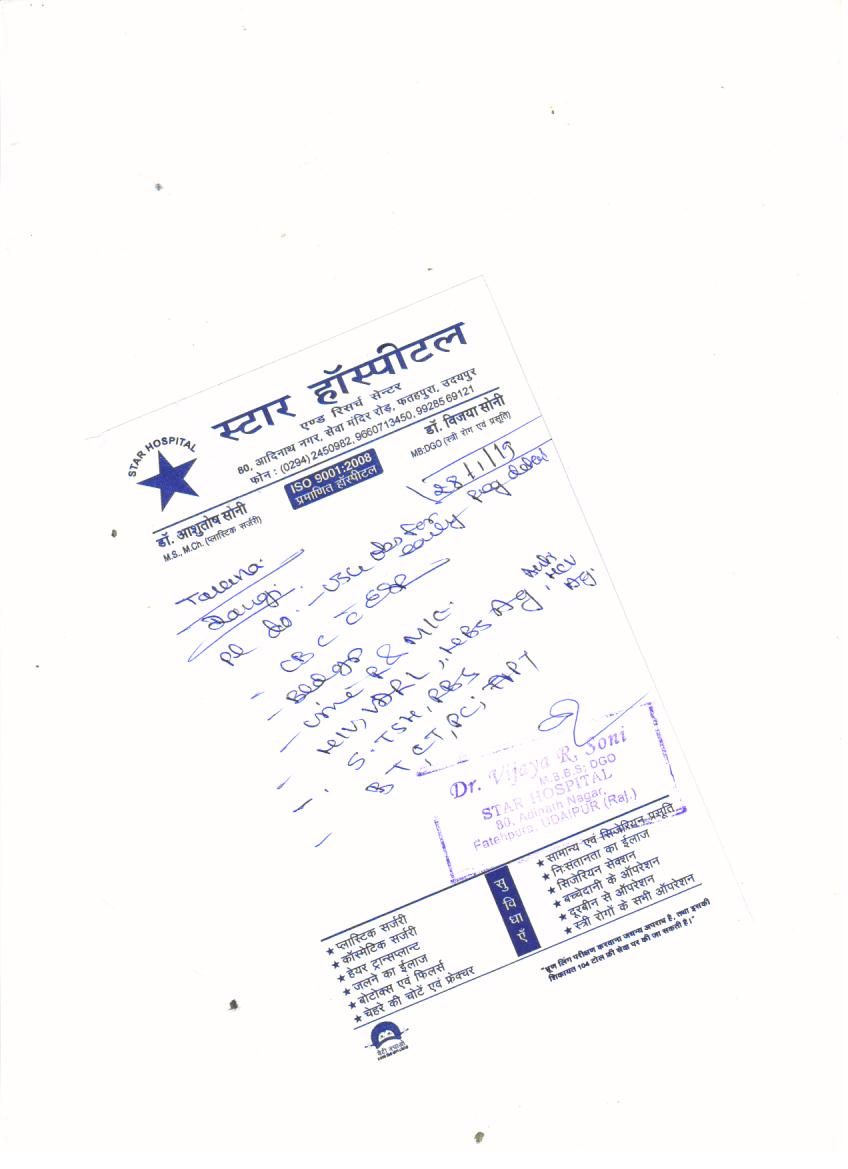 STAR HOSPITAL
स्टार हॉस्पीटल
एण्ड रिसर्च सेन्टर
80, आदिनाथ नगर, सेवा मंदिर रोड़, फतहपुरा, उदयपुर
फोन : (0294) 2450982, 9660713450, 99285 69121
ISO 9001:2008
प्रमाणित हॉस्पीटल
डॉ. आशुतोष सोनी
M.S., M.Ch. (प्लास्टिक सर्जरी)
डॉ. विजया सोनी
MB;DGO (स्त्री रोग एवं प्रसूति)
28/1/19
Pl do. - USG obs for
early
- CBC ESR
- Urine R & M/C.
- HIV, VDRL, HBS Ag, HCV
- S. TSH, RBS
- BT, CT, PC,
Dr. Vijaya R. Soni
M.B.B.S; DGO
STAR HOSPITAL
80, Adinath Nagar,
Fatehpura, UDAIPUR (Raj.)
सुविधाएँ
★ प्लास्टिक सर्जरी
★ कॉस्मेटिक सर्जरी
★ हेयर ट्रान्सप्लान्ट
★ जलने का ईलाज
★ बोटोक्स एवं फिलर्स
★ चेहरे की चोटें एवं फ्रेक्चर
★ सामान्य एवं सिजेरियन प्रसूति
★ निःसंतानता का ईलाज
★ सिजेरियन सेक्शन
★ बच्चेदानी के ऑपरेशन
★ दूरबीन से ऑपरेशन
★ स्त्री रोगों के सभी ऑपरेशन
"भ्रूण लिंग परीक्षण करवाना जघन्य अपराध है, तथा इसकी
शिकायत 104 टोल फ्री सेवा पर की जा सकती है।"
बेटी बचाओ